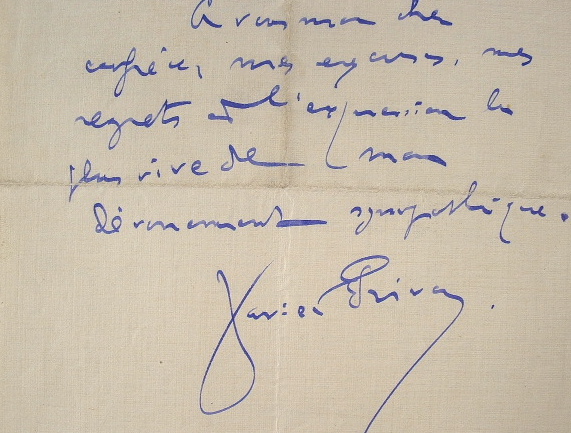 A vous mon cher
confrère, mes excuses, mes
regrets et l'expression la
plus vive de mon
dévouement sympathique.
Xavier Privas.